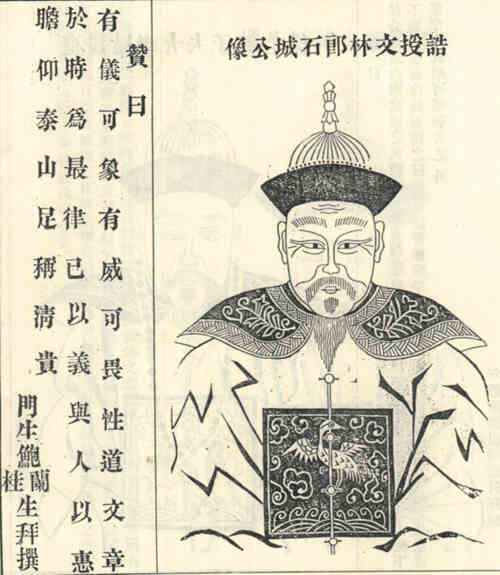 誥授文林郎石城公像
贊曰
有儀可象有威可畏性道文章
於時爲最律己以義與人以惠
瞻仰泰山足稱清貴
門生鮑蘭桂生拜撰